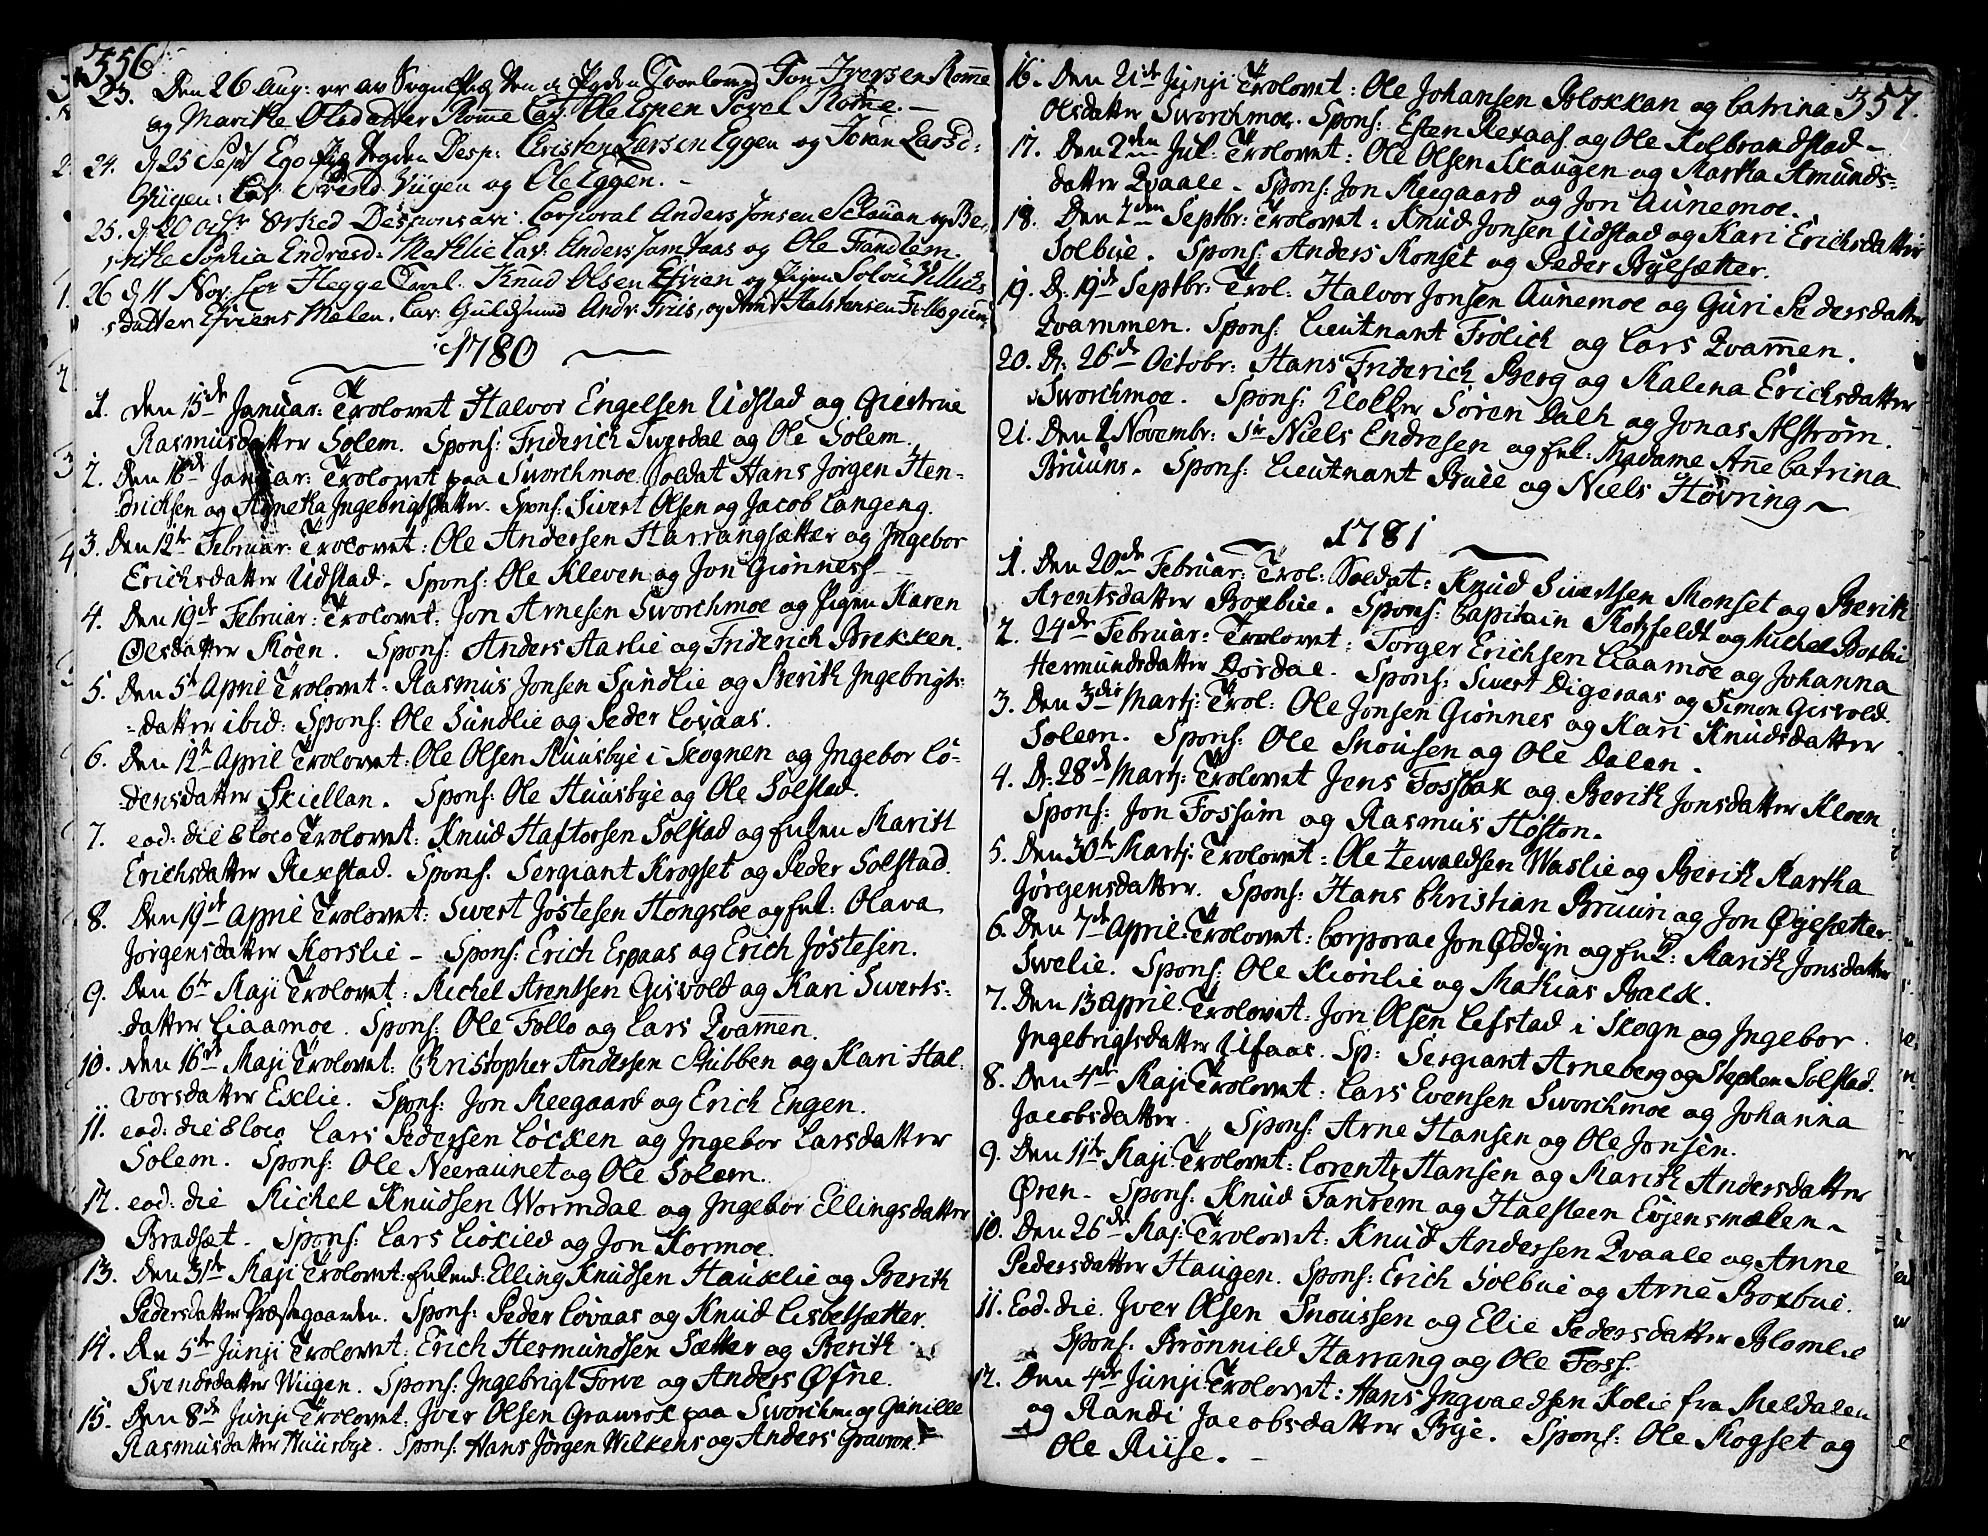 356
23. Den 26 Aug: er av Sogne Trolovet Jon Iversen Rømme
og Marithe Olsdatter Rømme Cav Ole Espen Porel Rømme. —
24. d 25 Sept Desp: Christen Larsen Eggen og Joran Larsd:
Wigen: Cav: Svend Viigen og Ole Eggen. —
25. d 20 Desponsavi: Corporal Anders Jonsen Sclauan og Be-
rithe Sophia Endresd: Mathlie Cav: Anders Jamtaas og Ole Trandlem.
26 d 11 Nov. Hegge Trol. Knud Olsen Evien og Pigen Solvi Nillus
datter Eviens Malen. Cav: Guldsmed Andr. Friis, og Arnt Halstensen
1780
1. Den 15de Januar: Trolovet Halvor Engelsen Udstad og Giertrue
Rasmusdatter Solem. Spons: Friderich Twerdal og Ole Solem.
2. Den 16de Januar: Trolovet paa Sworchmoe. Soldat Hans Jørgen Hen-
drichsen og Agnetha Ingebrigtsdatter. Spons: Sivert Olsen og Jacob Langeng.
3. Den 12te Februar: Trolovet: Ole Andersen Harrangsætter og Ingebor
Erichsdatter Udstad. Spons: Ole Kleven og Jon Giønnes.
4. Den 19de Februar: Trolovet: Jon Arnesen Sworchmoe og Pigen Karen
Olsdatter Moen. Spons: Anders Aarlie og Friderich Brekken.
5. Den 5te April Trolovet: Rasmus Jonsen Sundlie og Berith Ingebrigts-
datter ibid: Spons: Ole Sundlie og Peder Lovaas.
6. Den 12te April Trolovet: Ole Olsen Huusbye i Skognen og Ingebor Lo-
densdatter Skiellan. Spons: Ole Huusbye og Ole Solstad.
7. eod: die & loco Trolovet: Knud Haftorsen Solstad og Enken Marith
Erichsdatter Rexstad. Spons. Sergiant Krogset og Peder Solstad.
8. Den 19de April Trolovet: Swert Jostesen Hongsloe og Enk: Olava
Jørgensdatter Korslie — Spons: Erich Espaas og Erich Jostesen.
9. Den 6te Maji Trolovet: Michel Arentsen Gisvold og Kari Swerts-
datter Liaamoe. Spons: Ole Follo og Lars Qvammen.
10. Den 16de Maji Trolovet: Christopher Andersen Stubben og Kari Hal-
vorsdatter Exlie. Spons: Jon Meegaard og Erich Engen.
11. eod: die & loco Lars Pedersen Løcken og Ingebor Larsdatter
Solem. Spons: Ole Neeraunet og Ole Solem.
12. eod: die Michel Knudsen Wormdal og Ingebor Ellingsdatter
Bradset. Spons: Lars Lioxild og Jon Kormoe.
13. Den 31te Maji Trolovet: Enkem: Elling Knudsen Hauklie og Berith
Pedersdatter Præstegaarden. Spons: Peder Lovaas og Knud Lisbetsætter.
14. Den 5te Junji Trolovet: Erich Hermundsen Sætter og Berith
Svendsdatter Wiigen. Spons: Ingebrigt Forve og Anders Øfne.
15. Den 8de Junji Trolovet. Iver Olsen Gravrok paa Sworchm: og Gunille
Rasmusdatter Huusbye. Spons: Hans Jørgen Wilkens og Anders Gravrok
357.
16. Den 21de Junji Trolovet: Ole Johansen Blokkan og Catrina
Olsdatter Sworchmoe. Spons: Esten Rexaas og Ole Kolbrandstad —
17. Den 2den Jul: Trolovet: Ole Olsen Skaugen og Martha Amunds-
datter Qvaale — Spons: Jon Meegaard og Jon Aunemoe.
18. Den 2den Septbr: Trolovet: Knud Jonsen Udstad og Kari Erichsdatter
Solbue. Spons: Anders Monset og Peder Byesætter.
19. D: 19de Septbr: Trol: Halvor Jonsen Aunemoe og Guri Pedersdatter
Qvammen. Spons: Lieutnant Frolich og Lars Qvammen.
20. D: 26de Octobr: Hans Friderich Berg og Malena Erichsdatter
Sworchmoe. Spons: Klokker Søren Dalh og Jonas Alstrøm.
21. Den 1 Novembr: Sr Niels Endresen og Enk: Madame Anne Catrina
Bruuns. Spons: Lieutnant Bull og Niels Høvring —
1781
1. Den 20de Februar: Trol: Soldat: Knud Siwertsen Monset og Berith
Arentsdatter Boxbue. Spons: Capitain Kotzfeldt og Michel Boxbue
2. 24de Februar: Trolovet: Torger Erichsen Liaamoe og Johanna
Hermundsdatter Dordal. Spons: Swert Digeraas og Simon Gisvold.
3. Den 3die Martj: Trol: Ole Jonsen Giønnes og Kari Knudsdatter
Solem. Spons: Ole Snousen og Ole Dalen.
4. D: 28de Martj: Trolovet Jens Fossbak og Berith Jonsdatter Kloen
Spons: Jon Fossum og Rasmus Hoston.
5. Den 30te Martj: Trolovet: Ole Zewaldsen Waslie og Berith Martha
Jørgensdatter. Spons: Hans Christian Bruun og Jon Øyesætter.
6. Den 7de April: Trolovet: Corporal Jon Øddyn og Enk: Marith Jonsdatter
Swelie. Spons: Ole Kiønlie og Mathias Back.
7. Den 13 April: Trolovet: Jon Olsen Lefstad i Skogn og Ingebor
Ingebrigtsdatter Ulfaas. Sp: Sergiant Arneberg og Stephen Solstad.
8. Den 4de Maji Trolovet: Lars Evensen Sworchmoe og Johanna
Jacobsdatter. Spons: Arne Hansen og Ole Jonsen.
9. Den 11te Maji: Trolovet: Lorentz Hansen og Marith Andersdatter
Øren — Spons: Knud Fanrem og Halsteen Evjensmælen —
10. Den 26de Maj: Trolovet: Knud Andersen Qvaale og Anne
Pedersdatter Haugen. Spons: Erich Solbue og Arne Boxbue.
11. Eod: die. Iver Olsen Snoussen og Elie Pedersdatter Blomlie
Spons: Brønnild Harrang og Ole Foss.
12. Den 4de Junji: Trolovet: Hans Ingvaldsen Kolie fra Meldalen
og Randi Jacobsdatter Bye. Spons: Ole Rogset og
Ole Riise. —